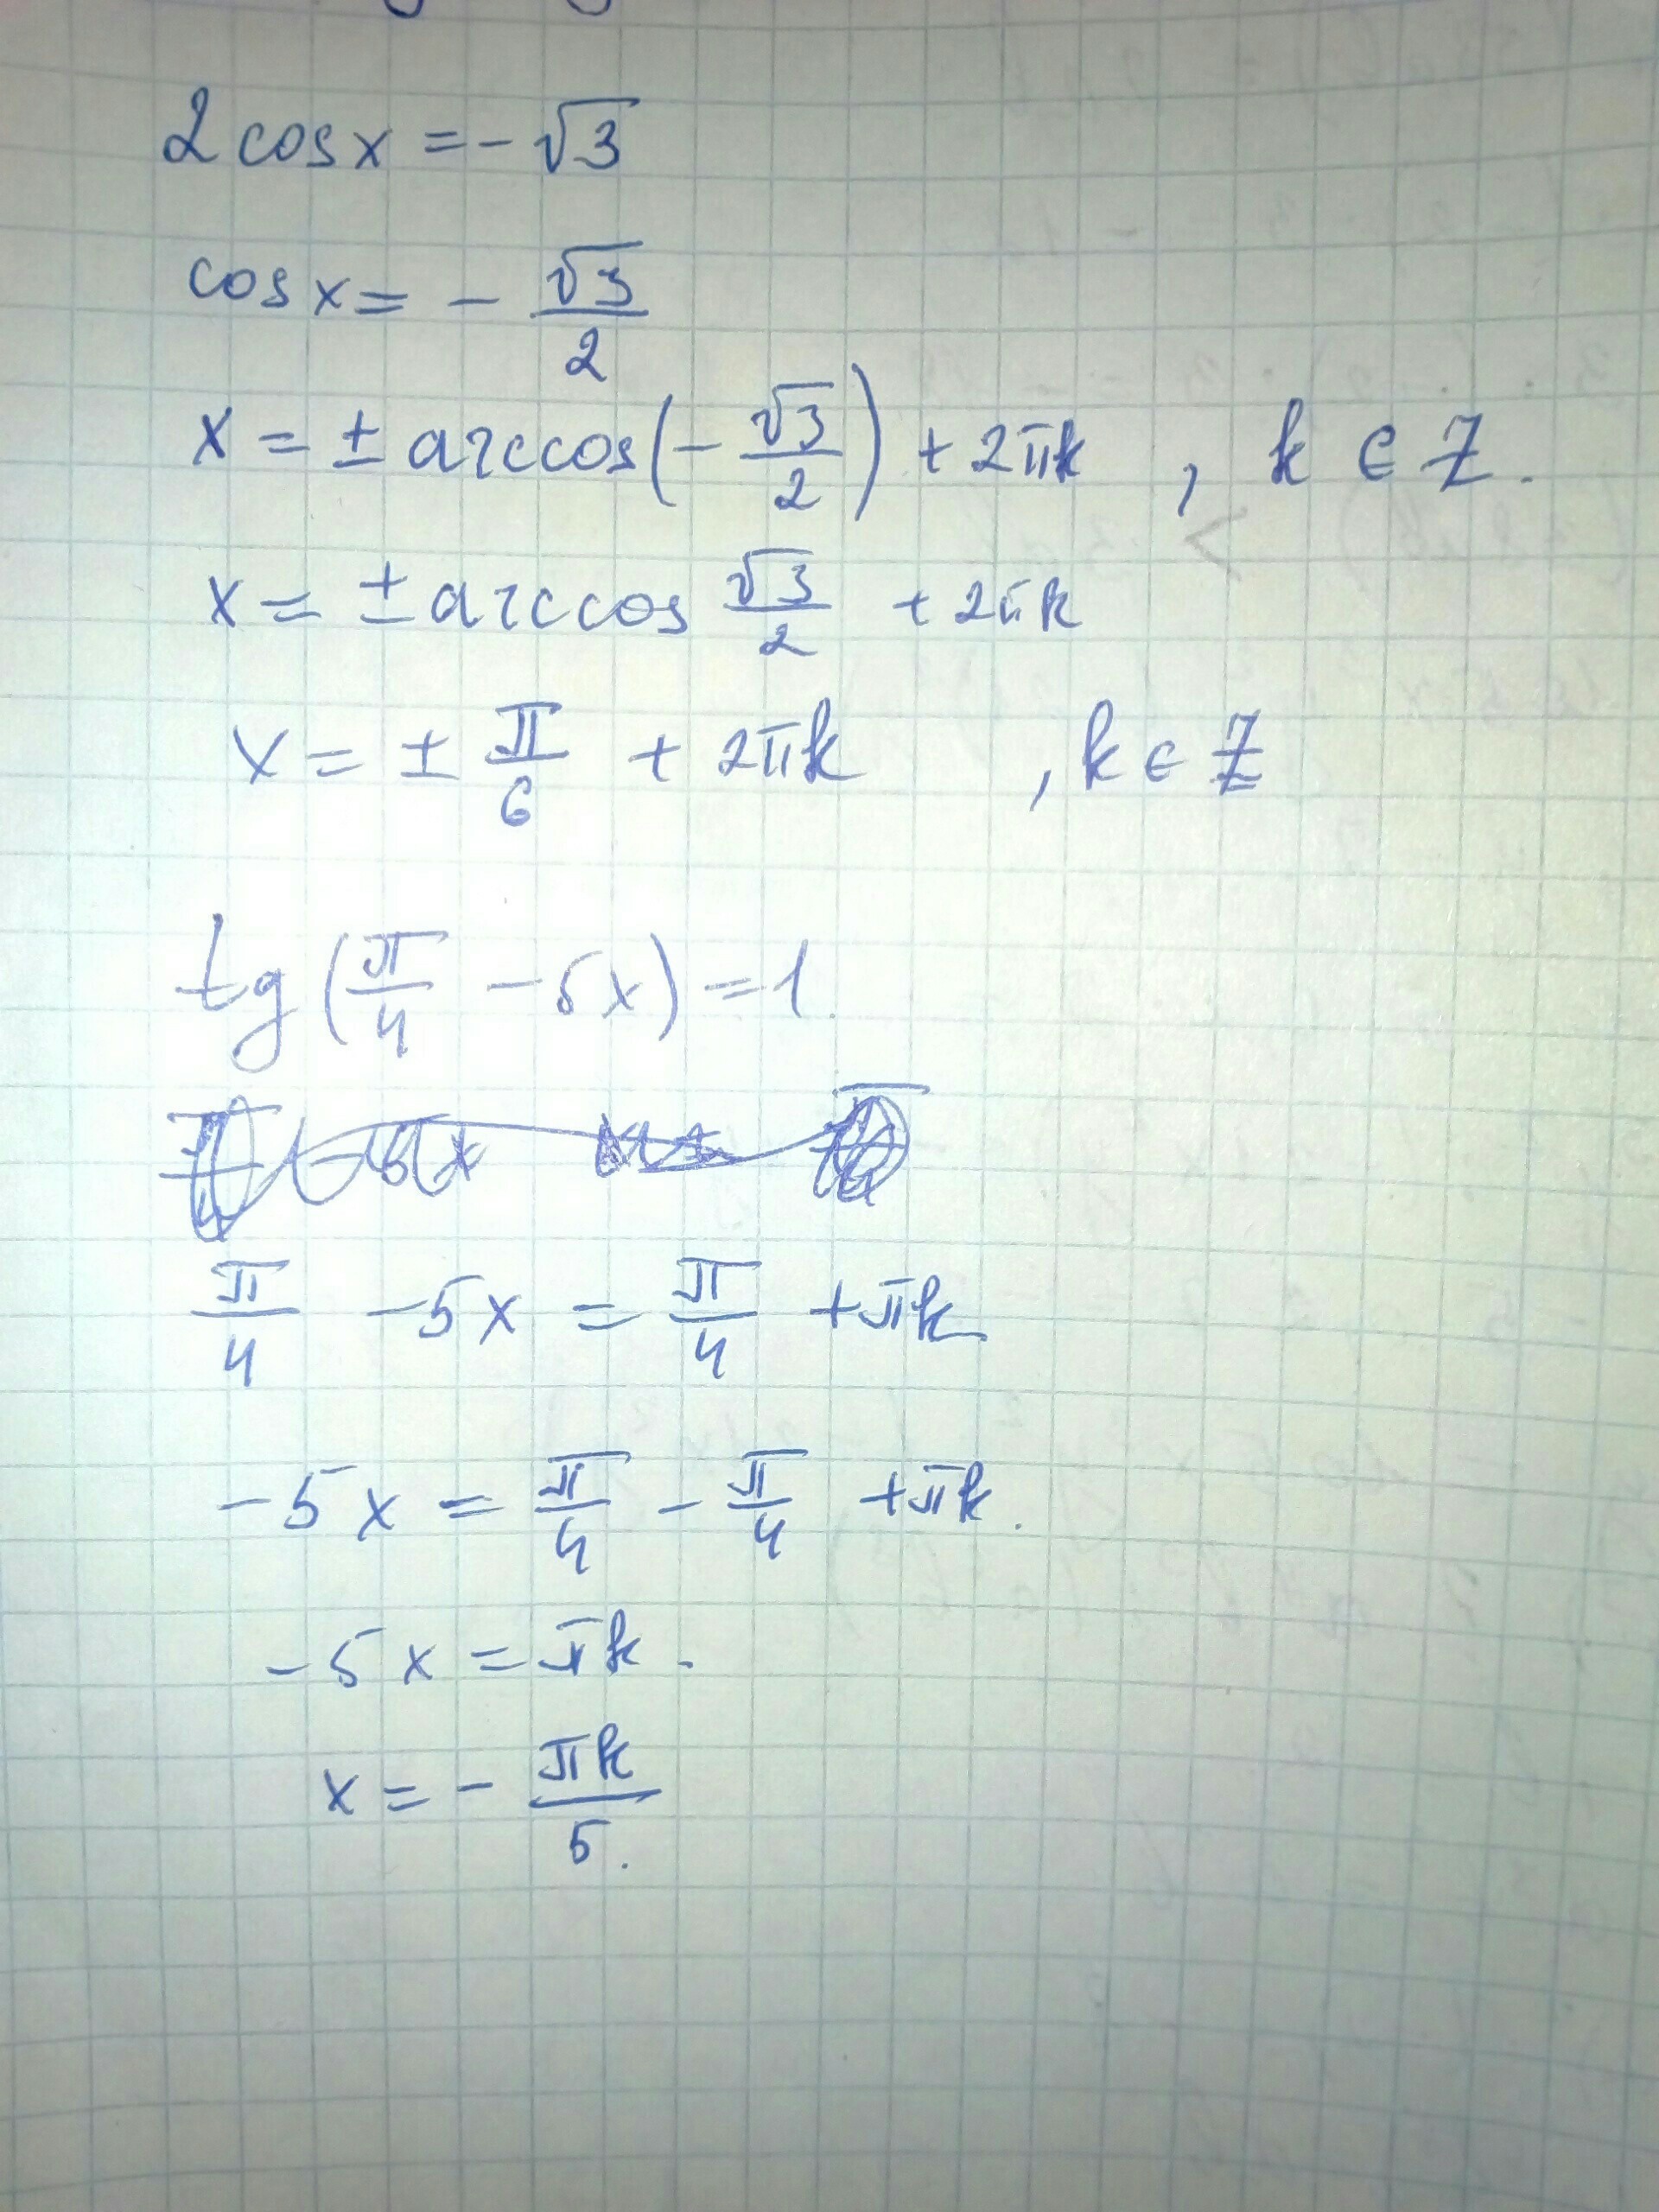 2 cos x = - √3
cos x = - √3/2
x = ± arccos(- √3/2) + 2πk , k ∈ Z.
x = ± arccos √3/2 + 2πk
x = ± π/6 + 2πk , k ∈ Z
tg (π/4 - 5x) = 1.
π/4 - 5x = π/4 + πk
- 5x = π/4 - π/4 + πk.
- 5x = πk.
x = - πk/5.